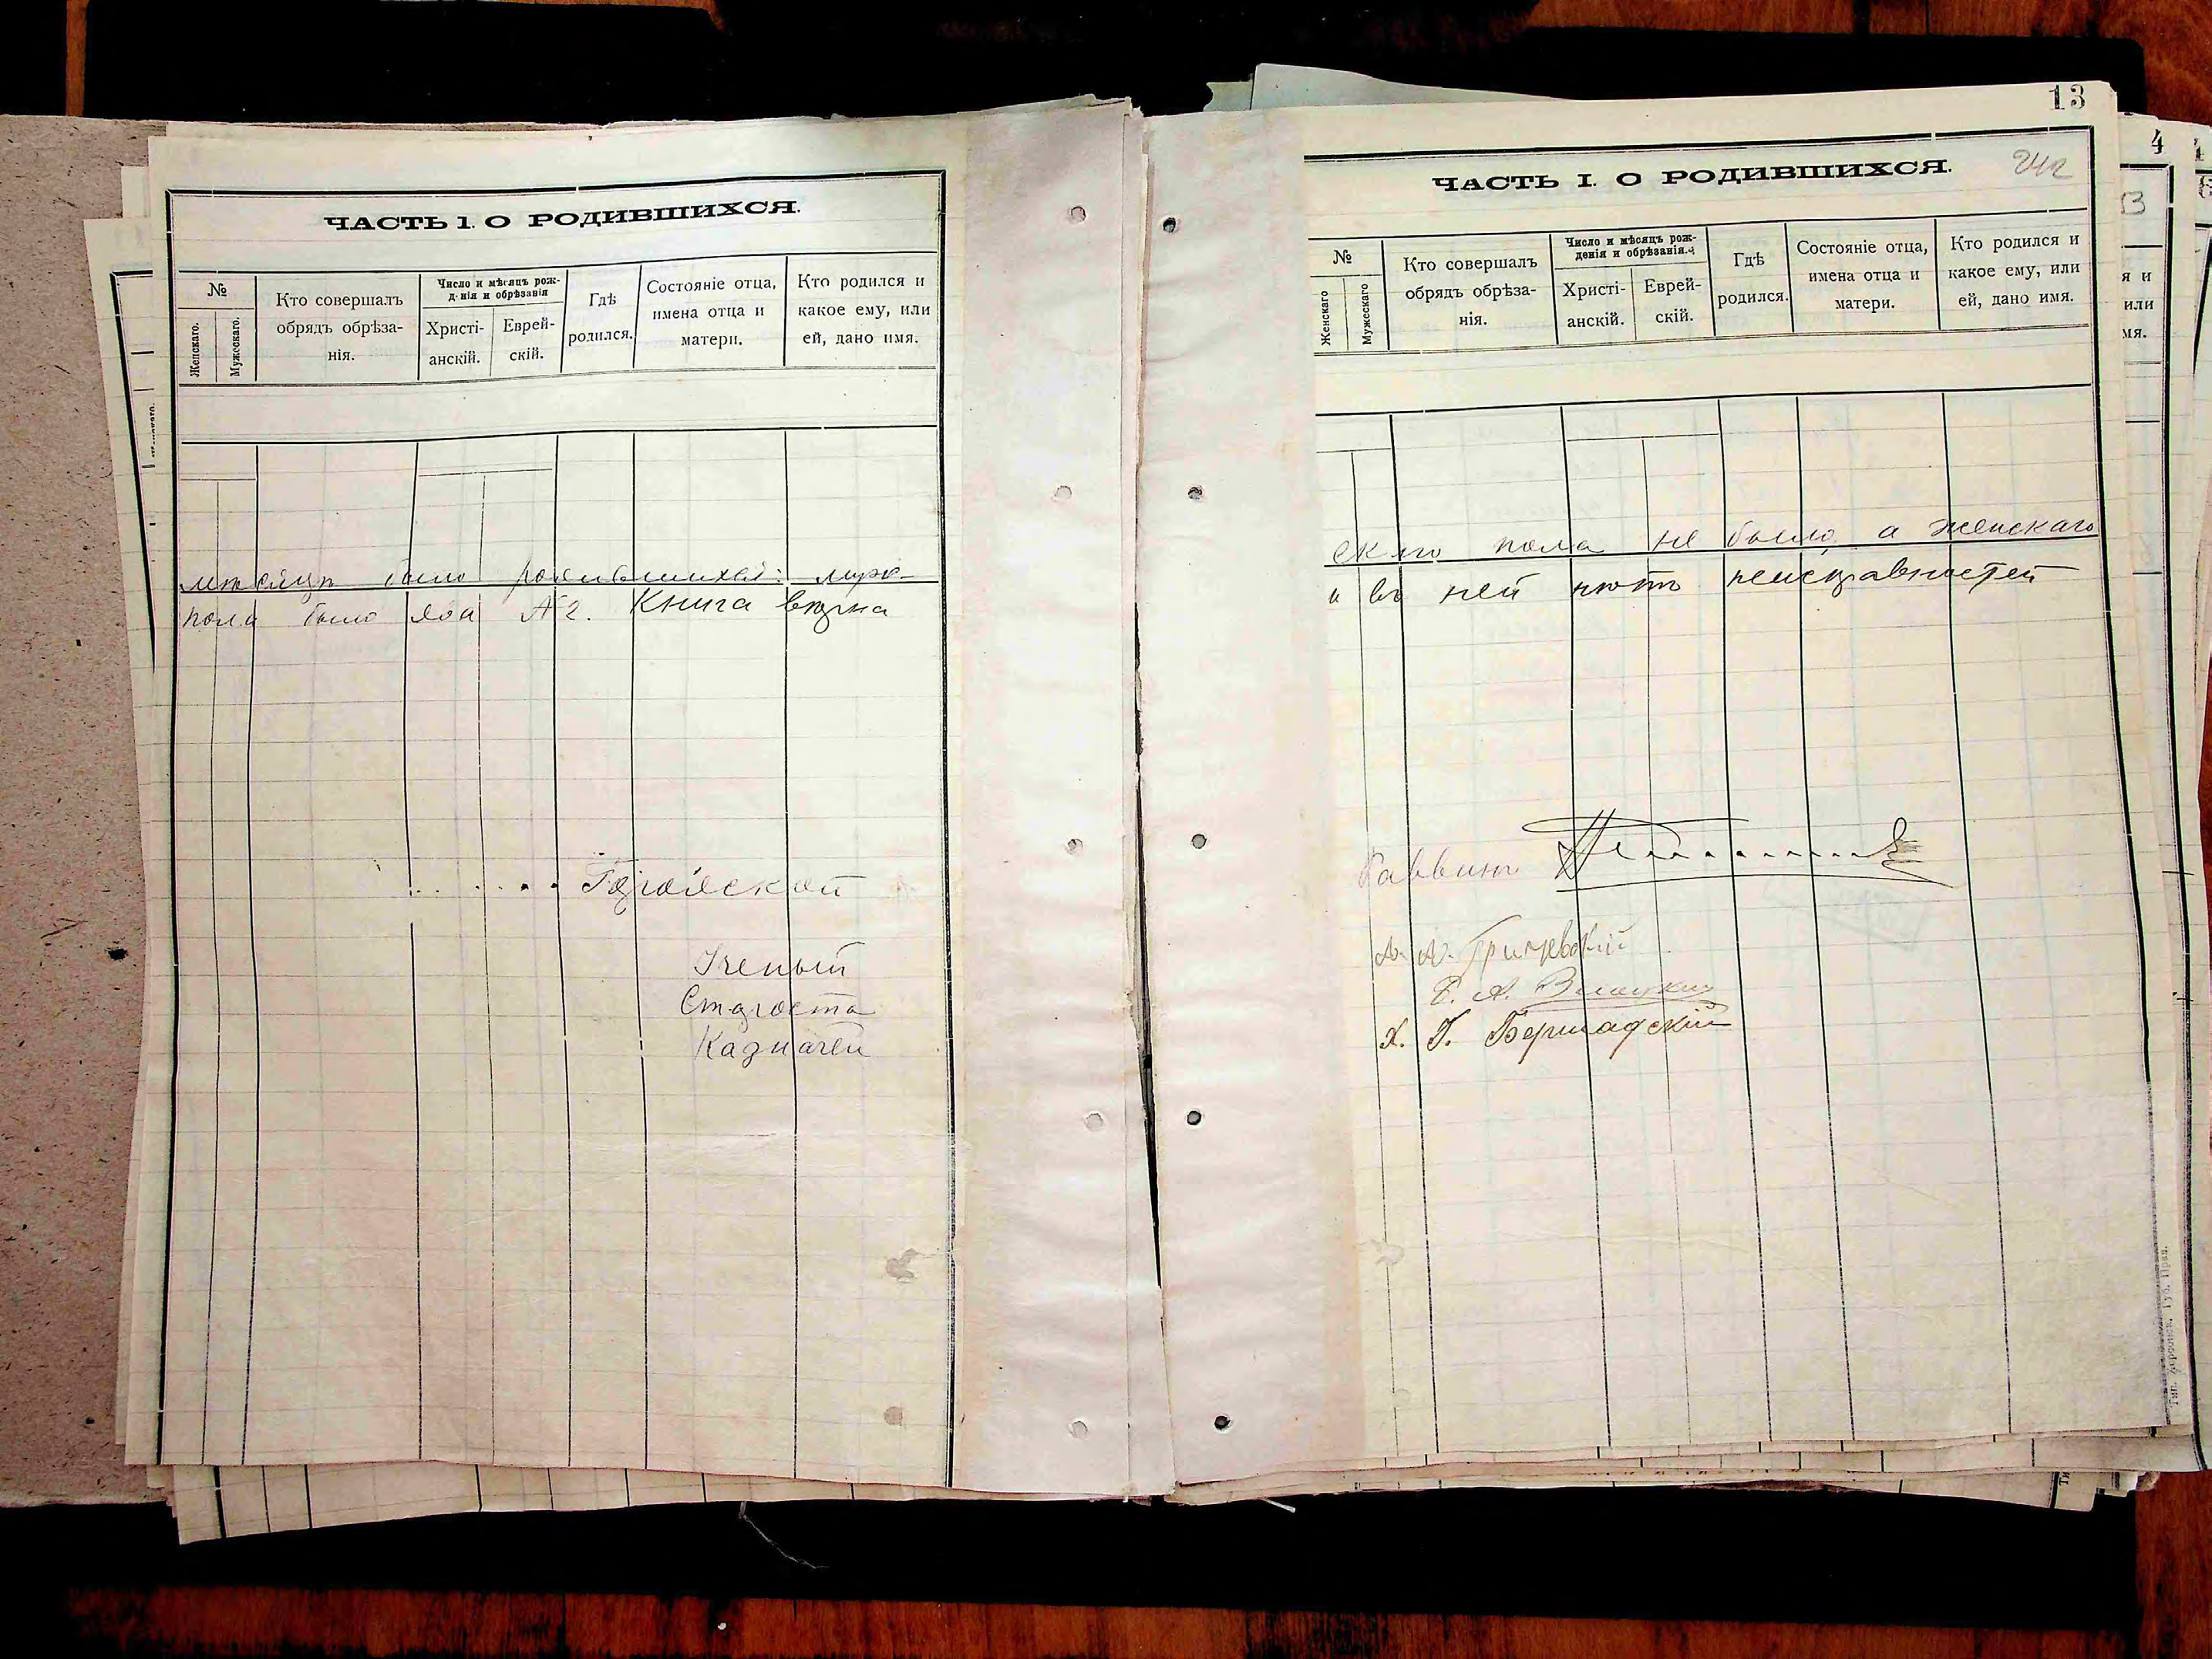 ЧАСТЬ 1. О РОДИВШИХСЯ.
№
Женскаго.
Мужескаго.
Кто совершалъ
обрядъ обрѣза-
нія.
Число и мѣсяцъ рож-
денія и обрѣзанія
Христі-
анскій.
Еврей-
скій.
Гдѣ
родился.
Состояніе отца,
имена отца и
матери.
Кто родился и
какое ему, или
ей, дано имя.
мѣсяцъ было родившихся: муже-
пола было два № 2. Книга вѣрна
Городской
Ученый
Староста
Казначей
13
242
ЧАСТЬ I. О РОДИВШИХСЯ.
№
Женскаго
Мужескаго
Кто совершалъ
обрядъ обрѣза-
нія.
Число и мѣсяцъ рож-
денія и обрѣзанія.
Христі-
анскій.
Еврей-
скій.
Гдѣ
родился.
Состояніе отца,
имена отца и
матери.
Кто родился и
какое ему, или
ей, дано имя.
скаго пола не было, а женскаго
и въ ней нѣтъ неисправностей
Раввинъ
А.
Х. Г. Бершадскій
4
3
я и
или
мя.